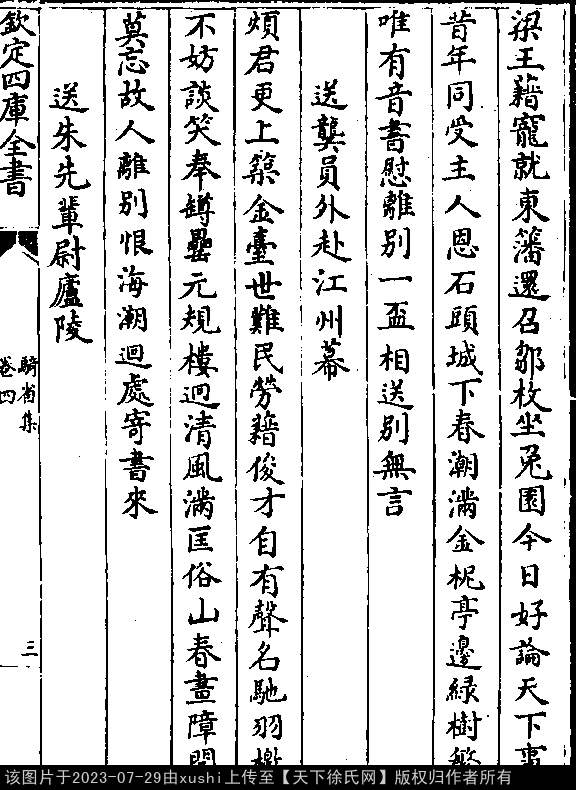 梁王籍寵就東籓還召鄒枚坐兎園今日好論天下事
昔年同受主人恩石頭城下春潮滿金柅亭邊緑樹繁
唯有音書慰離別一盃相送別無言
送龔員外赴江州幕
煩君更上築金臺世難民勞藉俊才自有聲名馳羽檄
不妨談笑奉罇罍元規樓迥清風滿匡俗山春畫障開
莫忘故人離別恨海潮迴處寄書來
送朱先輩尉廬陵
欽定四庫全書
騎省集
卷四
三
该图片于2023-07-29由xushi上传至【天下徐氏网】版权归作者所有